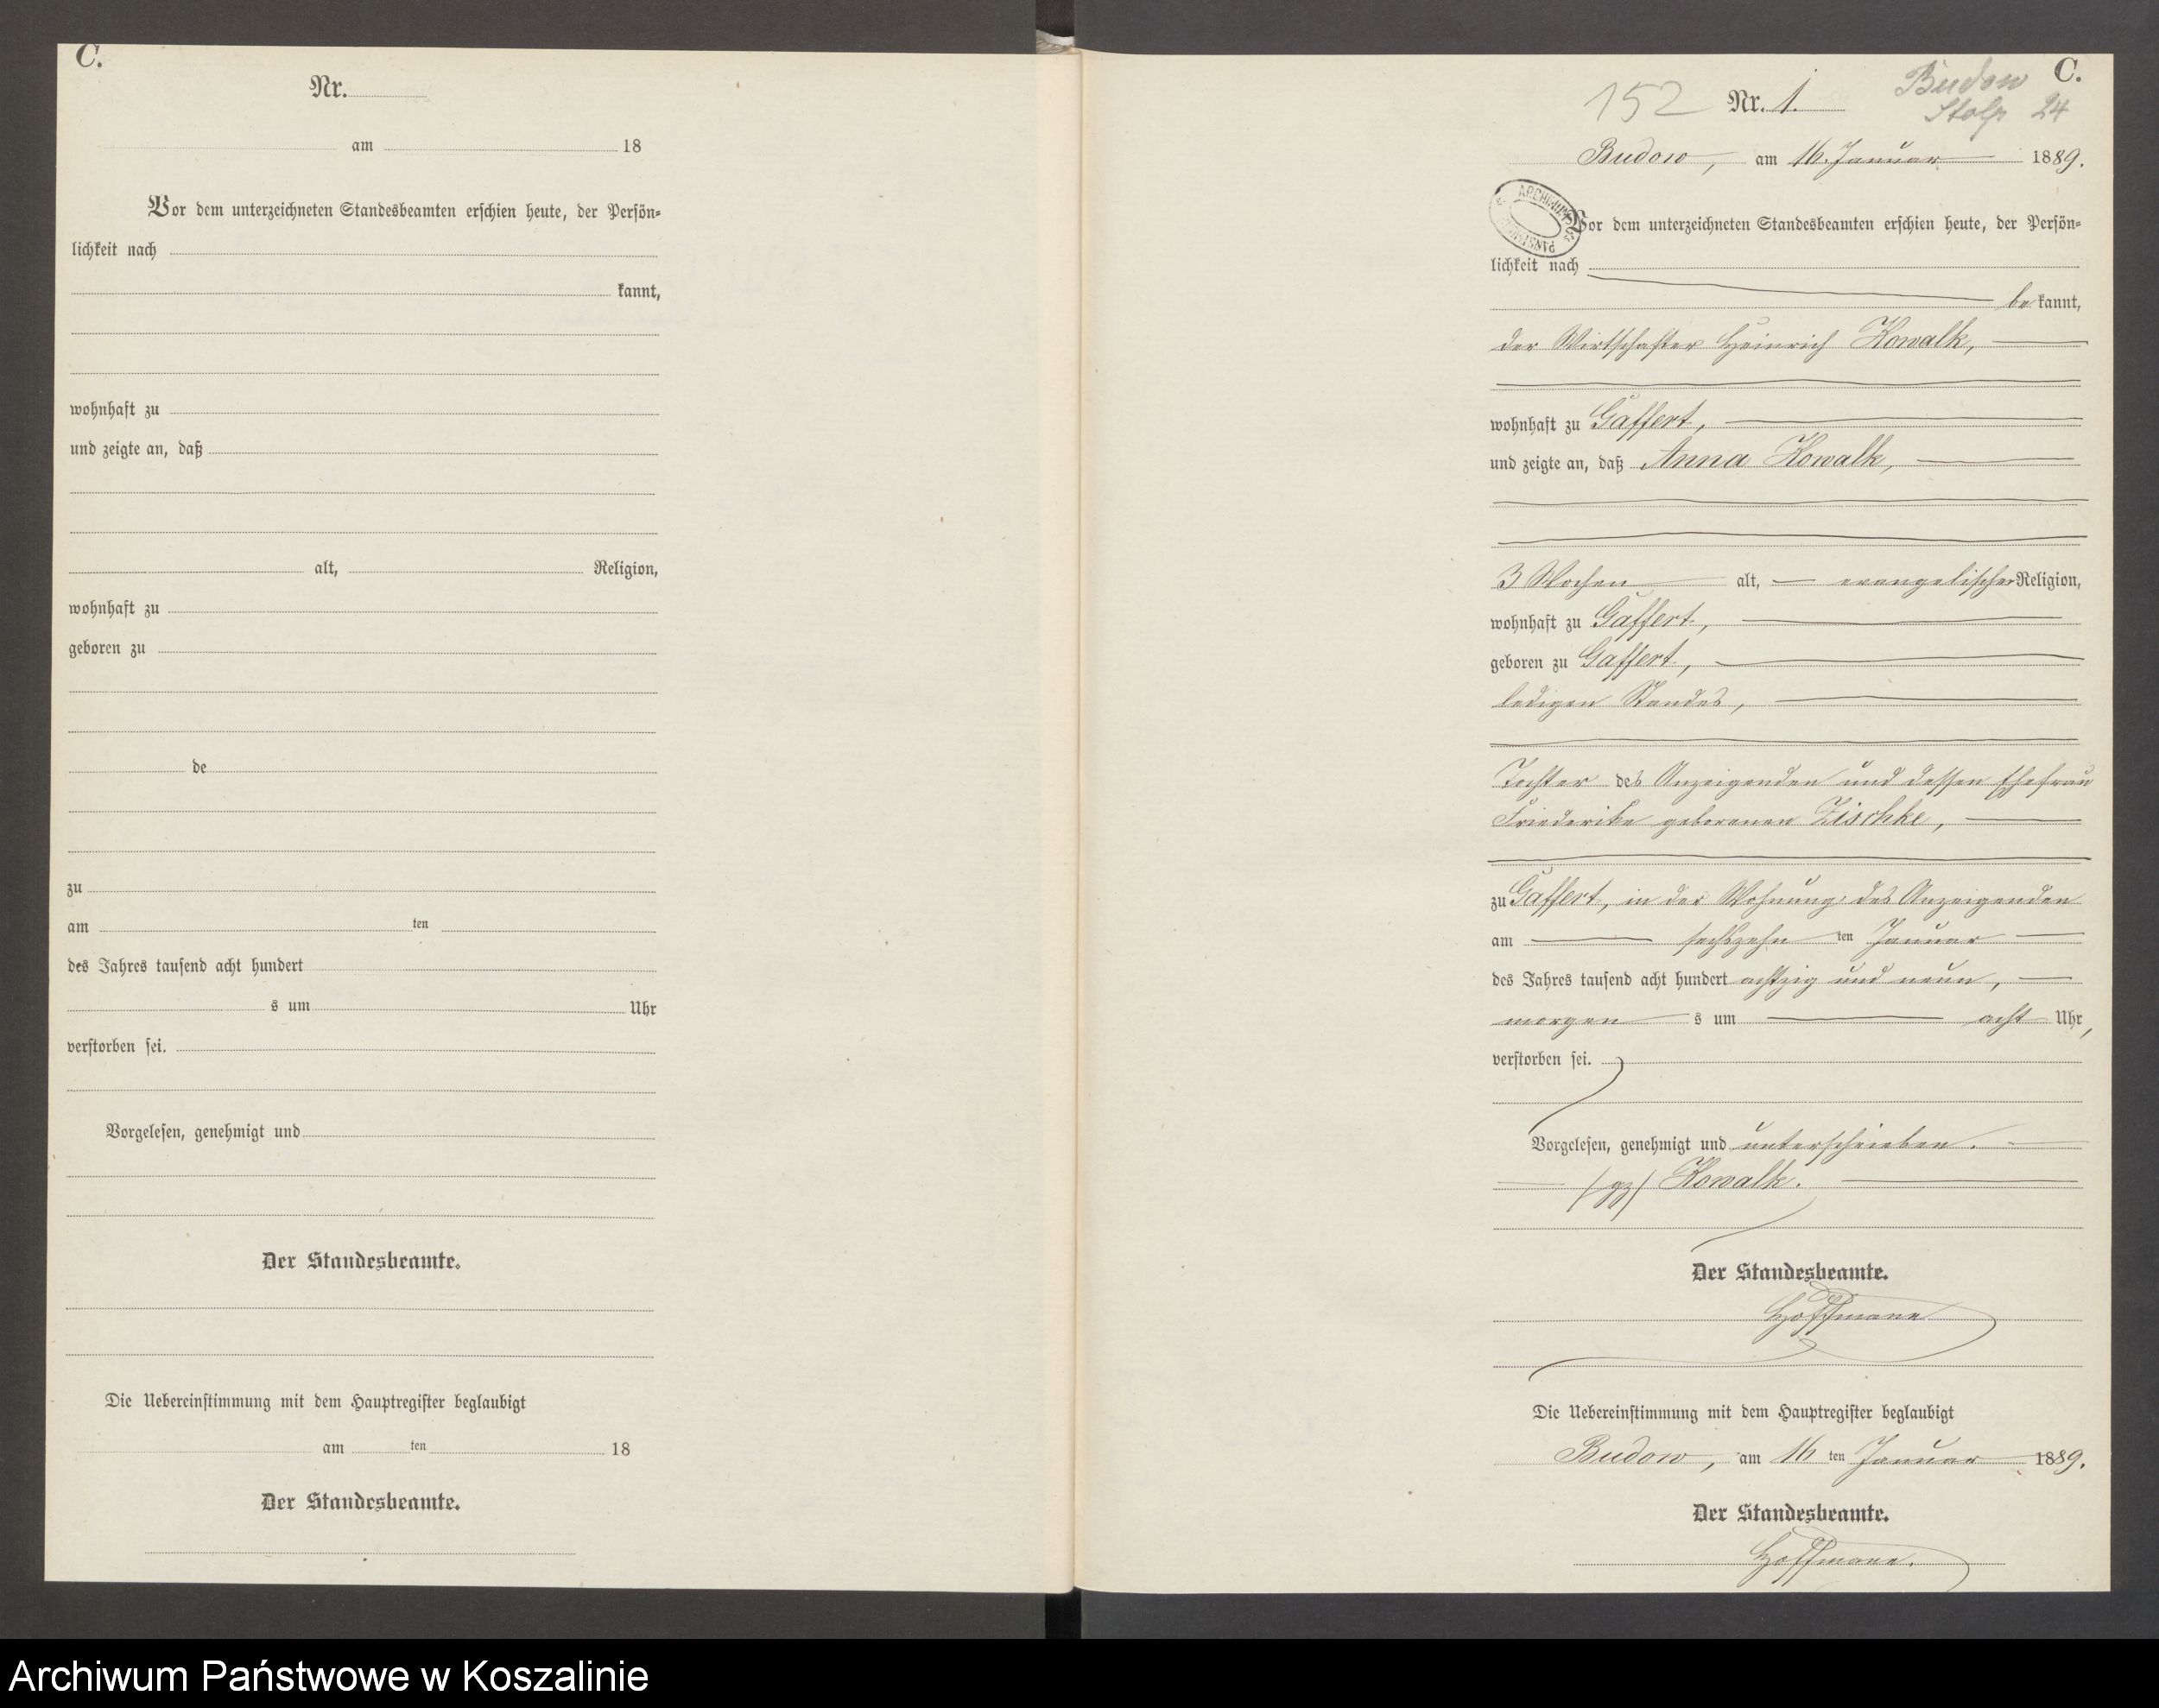 C.
Nr.
am 18
Vor dem unterzeichneten Standesbeamten erschien heute, der Persön-
lichkeit nach
kannt,
wohnhaft zu
und zeigte an, daß
alt, Religion,
wohnhaft zu
geboren zu
de
zu
am ten
des Jahres tausend acht hundert
s um Uhr
verstorben sei.
Vorgelesen, genehmigt und
Der Standesbeamte.
Die Uebereinstimmung mit dem Hauptregister beglaubigt
am ten 18
Der Standesbeamte.
C.
Budow
Stolp 24
152 Nr. 1.
Budow, am 16. Januar 1889.
ARCHIWUM
Vor dem unterzeichneten Standesbeamten erschien heute, der Persön-
lichkeit nach
bekannt,
der Wirthschafter Heinrich Kowalk,
wohnhaft zu Gaffert,
und zeigte an, daß Anna Kowalk,
3 Wochen alt, evangelischer Religion,
wohnhaft zu Gaffert,
geboren zu Gaffert,
ledigen Standes,
Tochter des Anzeigenden und dessen Ehefrau
Friederike geborenen Zischke,
zu Gaffert, in der Wohnung des Anzeigenden
am sechszehn ten Januar
des Jahres tausend acht hundert achtzig und neun,
morgen s um acht Uhr,
verstorben sei.
Vorgelesen, genehmigt und unterschrieben.
(gz) Kowalk.
Der Standesbeamte.
Hoffmann
Die Uebereinstimmung mit dem Hauptregister beglaubigt
Budow, am 16 ten Januar 1889.
Der Standesbeamte.
Hoffmann.
Archiwum Państwowe w Koszalinie